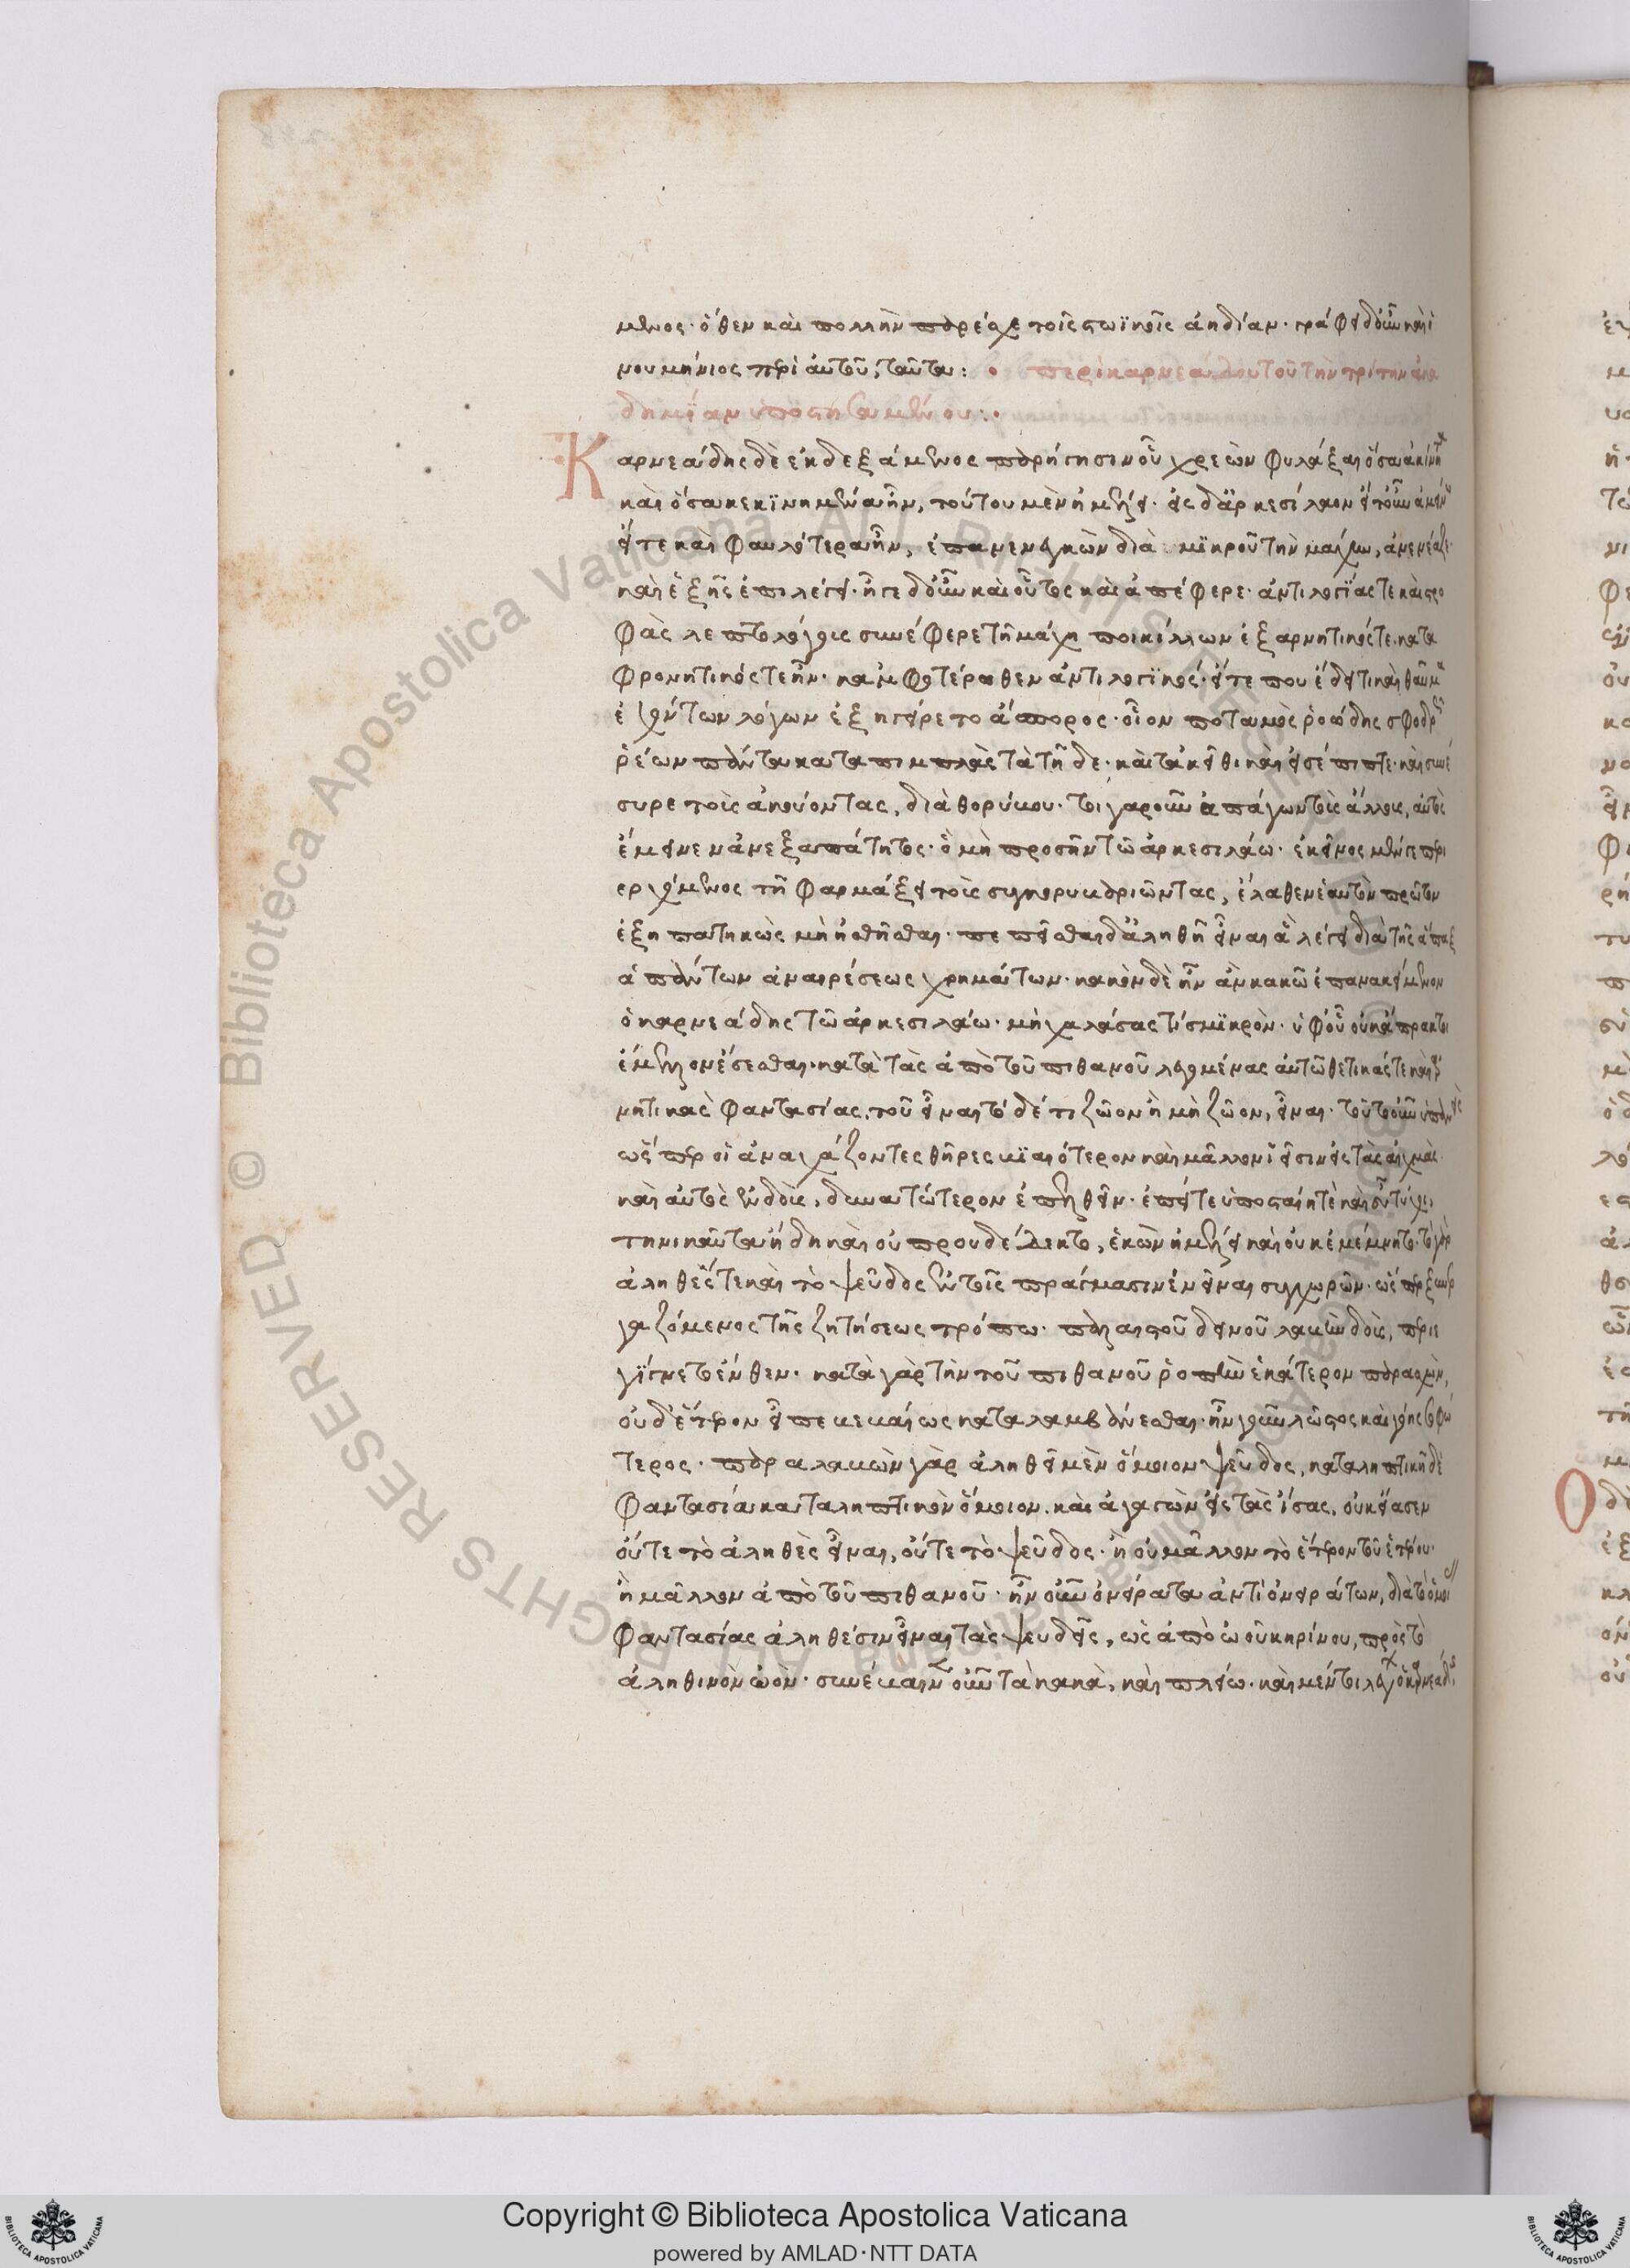 μενος· ὅθεν καὶ πολλὴν παρέσχε τοῖς στωϊκοῖς ἀηδίαν· γράφει δ' οὖν καὶ
νουμήνιος περὶ αὐτοῦ, ταῦτα: · περὶ καρνεάδου τοῦ τὴν τρίτην ἀκα
δημίαν ὑποστησαμένου:·
Καρνεάδης δὲ ἐκδεξάμενος παρ' ἡγησίνου χρεὼν φυλάξαι ὅσα ἀκίνητ
καὶ ὅσα κεκινημένα ἦν, τούτου μὲν ἠμέλει· εἰς δ' ἀρκεσίλαον εἴτ' οὖν ἀμείνω
εἴτε καὶ φαυλότερα ἦν, ἐπανενεγκὼν διὰ μικροῦ τὴν μάχην, ἀνενέαζε·
καὶ ἑξῆς ἐπιλέγει· ἦγε δ' οὖν καὶ οὗτος καὶ ἀπέφερε· ἀντιλογίας τε καὶ στρο
φὰς λεπτολόγους συνέφερε τῇ μάχῃ ποικίλλων ἐξαρνητικός τε κατα
φρονητικός τε ἦν· κἀμφοτέρωθεν ἀντιλογικός· εἴτε που ἔδει τι καὶ θαῦμα
ἐχόντων λόγων ἐξηγείρετο ἄπορος· οἷον ποταμὸς ῥοώδης σφοδρῶς
ῥέων πάντα καταπιμπλὰς τὰ τῇδε· καὶ τἀκεῖθι καὶ εἰσέπιπτε· καὶ συνέ
συρε τοὺς ἀκούοντας, διὰ θορύβου· τοιγαροῦν ἀπάγων τοὺς ἄλλους, αὐτὸς
ἔμεινεν ἀνεξαπάτητος· ὃ μὴ προσῆν τῷ ἀρκεσιλάῳ· ἐκεῖνος μέντε περι
ερχόμενος τῇ φαρμάξει τοὺς συγκορυβαντιῶντας, ἔλαθεν ἑαυτὸν πρῶτον
ἐξηπατηκὼς μὴ ἠσθῆσθαι· πεπεῖσθαι δ' ἀληθῆ εἶναι ἃ λέγει διὰ τῆς ἅπαξ
ἁπάντων ἀναιρέσεως χρημάτων· κακὸν δὲ ἦν ἂν κακῷ ἐπανακείμενον
ὁ καρνεάδης τῷ ἀρκεσιλάῳ· μὴ χαλάσας τι σμικρὸν· ὑφ' οὗ οὐκ ἄπρακτοι
ἔμελλον ἔσεσθαι· κατὰ τὰς ἀπὸ τοῦ πιθανοῦ λεγομένας αὐτῷ θετικάς τε καὶ ἀρ
νητικὰς φαντασίας, τοῦ εἶναι τόδέ τι ζῷον ἢ μὴ ζῷον, εἶναι· τοῦτο οὖν ὑπανεὶς
ὥσπερ οἱ ἀναχάζοντες θῆρες βιαιότερον καὶ μᾶλλον ἵεισιν εἰς τὰς αἰχμὰς
καὶ αὐτὸς ἐνδοὺς, δυνατώτερον ἐπῆλθεν· ἐπεί τε ὑποσταίη τὲ καὶ εὖ τύχοι,
τηνικαῦτα ἤδη καὶ οὗ προυδέδεκτο, ἑκὼν ἠμέλει καὶ οὐκ ἐμέμνητο· τὸ γὰρ
ἀληθές τε καὶ τὸ ψεῦδος ἐν τοῖς πράγμασιν ἐνεῖναι συγχωρῶν· ὥσπερ ξυνερ
γαζόμενος τῆς ζητήσεως τρόπῳ· παλαιστοῦ δεινοῦ λαβὴν δοὺς, περιε
γίγνετο ἔνθεν· κατὰ γὰρ τὴν τοῦ πιθανοῦ ῥοπὴν ἑκάτερον παρασχὼν,
οὐδ' ἕτερον εἶπε βεβαίως καταλαμβάνεσθαι· ἦν γοῦν λῃστὸς καὶ γόης σοφώ
τερος· παραλαβὼν γὰρ ἀληθεῖ μὲν ὅμοιον ψεῦδος, καταληπτικῇ δὲ
φαντασίᾳ καταληπτικὸν ὅμοιον· καὶ ἀγαγὼν εἰς τὰς ἴσας, οὐκ εἴασεν
οὔτε τὸ ἀληθὲς εἶναι, οὔτε τὸ ψεῦδος· ἢ οὐ μᾶλλον τὸ ἕτερον τοῦ ἑτέρου·
ἢ μᾶλλον ἀπὸ τοῦ πιθανοῦ· ἦν οὖν ὀνείρατα ἀντὶ ὀνειράτων, διὰ τὸ ὁμοί
φαντασίας ἀληθέσιν εἶναι τὰς ψευδεῖς, ὡς ἀπὸ ὠοῦ κηρίνου, πρὸς τὸ
ἀληθινὸν ὠόν· συνέβαινεν οὖν τὰ κακὰ, καὶ πλείω· καὶ μέντοι λέγων ὁ καρνεάδης